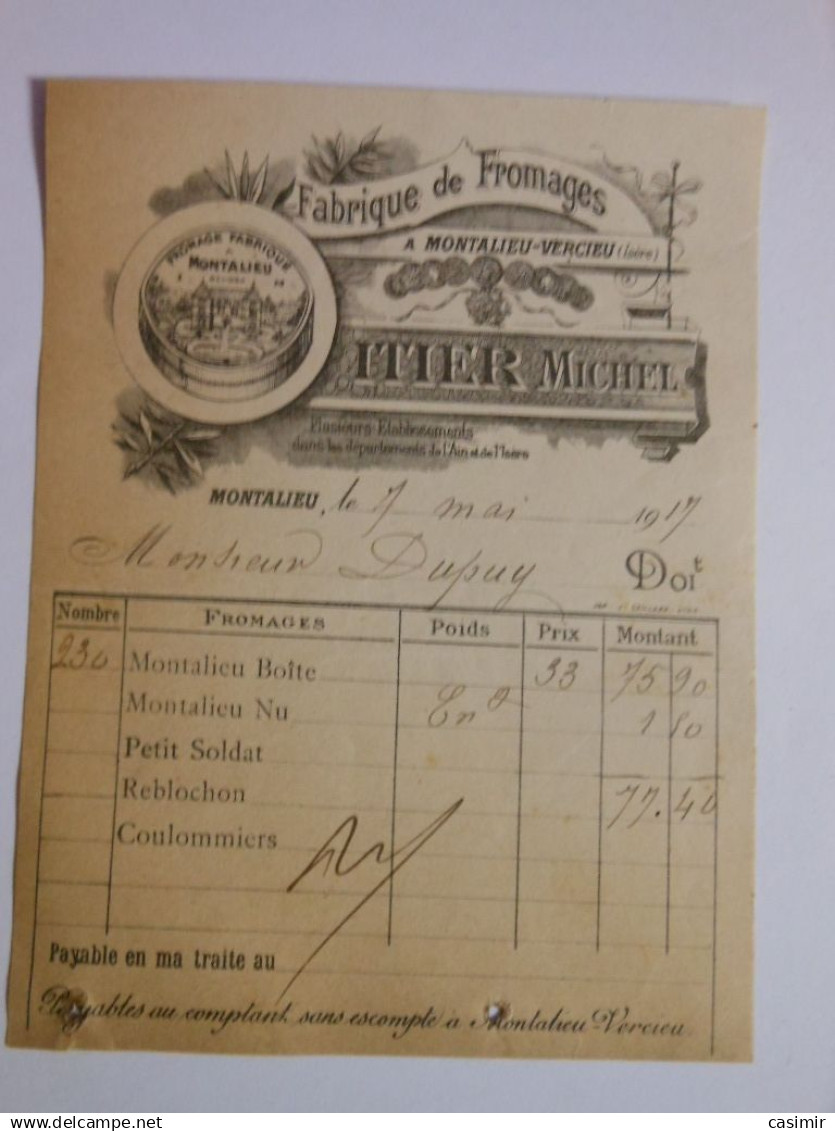 Fabrique de Fromages
A MONTALIEU-VERCIEU (Isère)
FROMAGE FABRIQUE
A
MONTALIEU
ITIER MICHEL
Plusieurs Etablissements
dans les départements de l'Ain et de l'Isère
MONTALIEU, le 7 mai 1917
Monsieur Dupuy Doit
Nombre FROMAGES Poids Prix Montant
230 Montalieu Boîte 33 75 90
Montalieu Nu En 1 50
Petit Soldat
Reblochon 77.40
Coulommiers
Payable en ma traite au
Payables au comptant sans escompte à Montalieu-Vercieu
delcampe.net
casimir